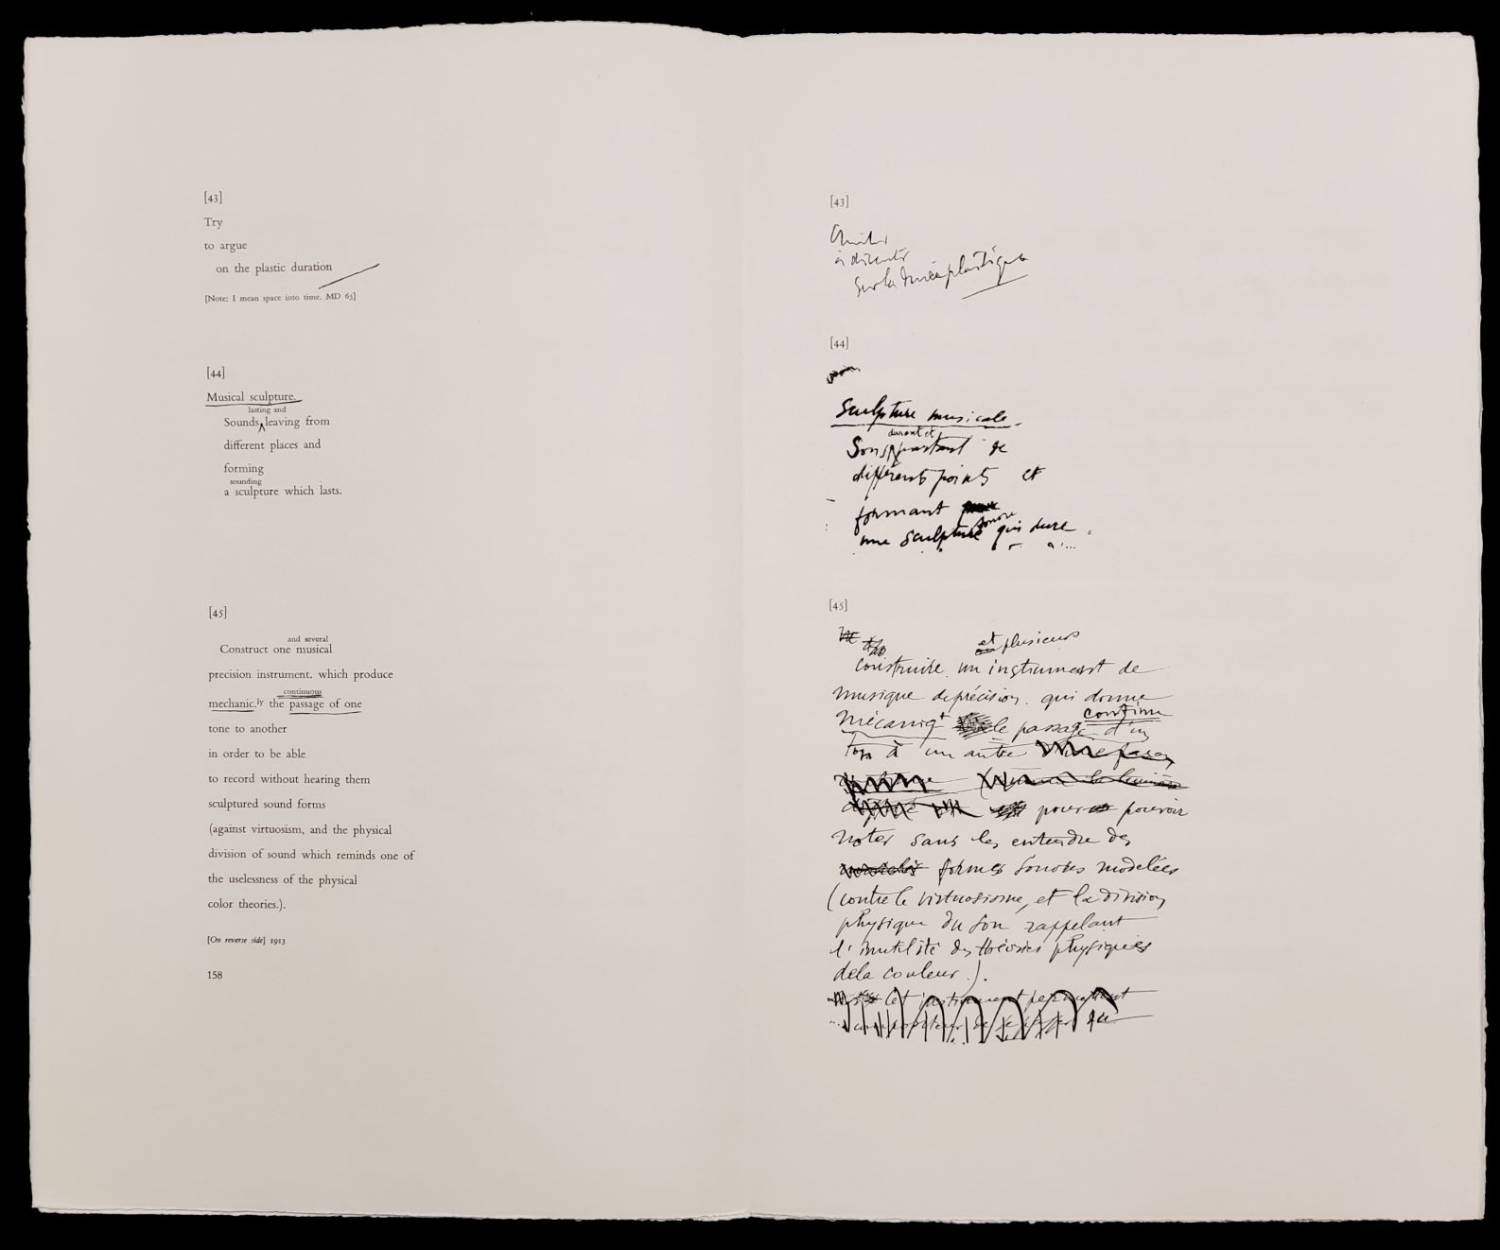 [43]
Try
to argue
on the plastic duration
[Note: I mean space into time. MD 65]
[44]
Musical sculpture.
lasting and
Sounds leaving from
different places and
forming
sounding
a sculpture which lasts.
[45]
and several
Construct one musical
precision instrument. which produce
continuous
mechanic.ly the passage of one
tone to another
in order to be able
to record without hearing them
sculptured sound forms
(against virtuosism, and the physical
division of sound which reminds one of
the uselessness of the physical
color theories.).
[On reverse side] 1913
158
[43]
à discuter
sur la durée plastique
[44]
Sculpture musicale.
durant et
Sons partant de
différents points et
formant
sonore
une sculpture qui dure.
[45]
et plusieurs
construire un instrument de
musique de précision. qui donne
continu
mécaniqt le passage d'un
ton à un autre
pour pouvoir
noter sans les entendre des
formes sonores modelées
(contre le virtuosisme, et la division
physique du son rappelant
l'inutilité des théories physiques
de la couleur.).